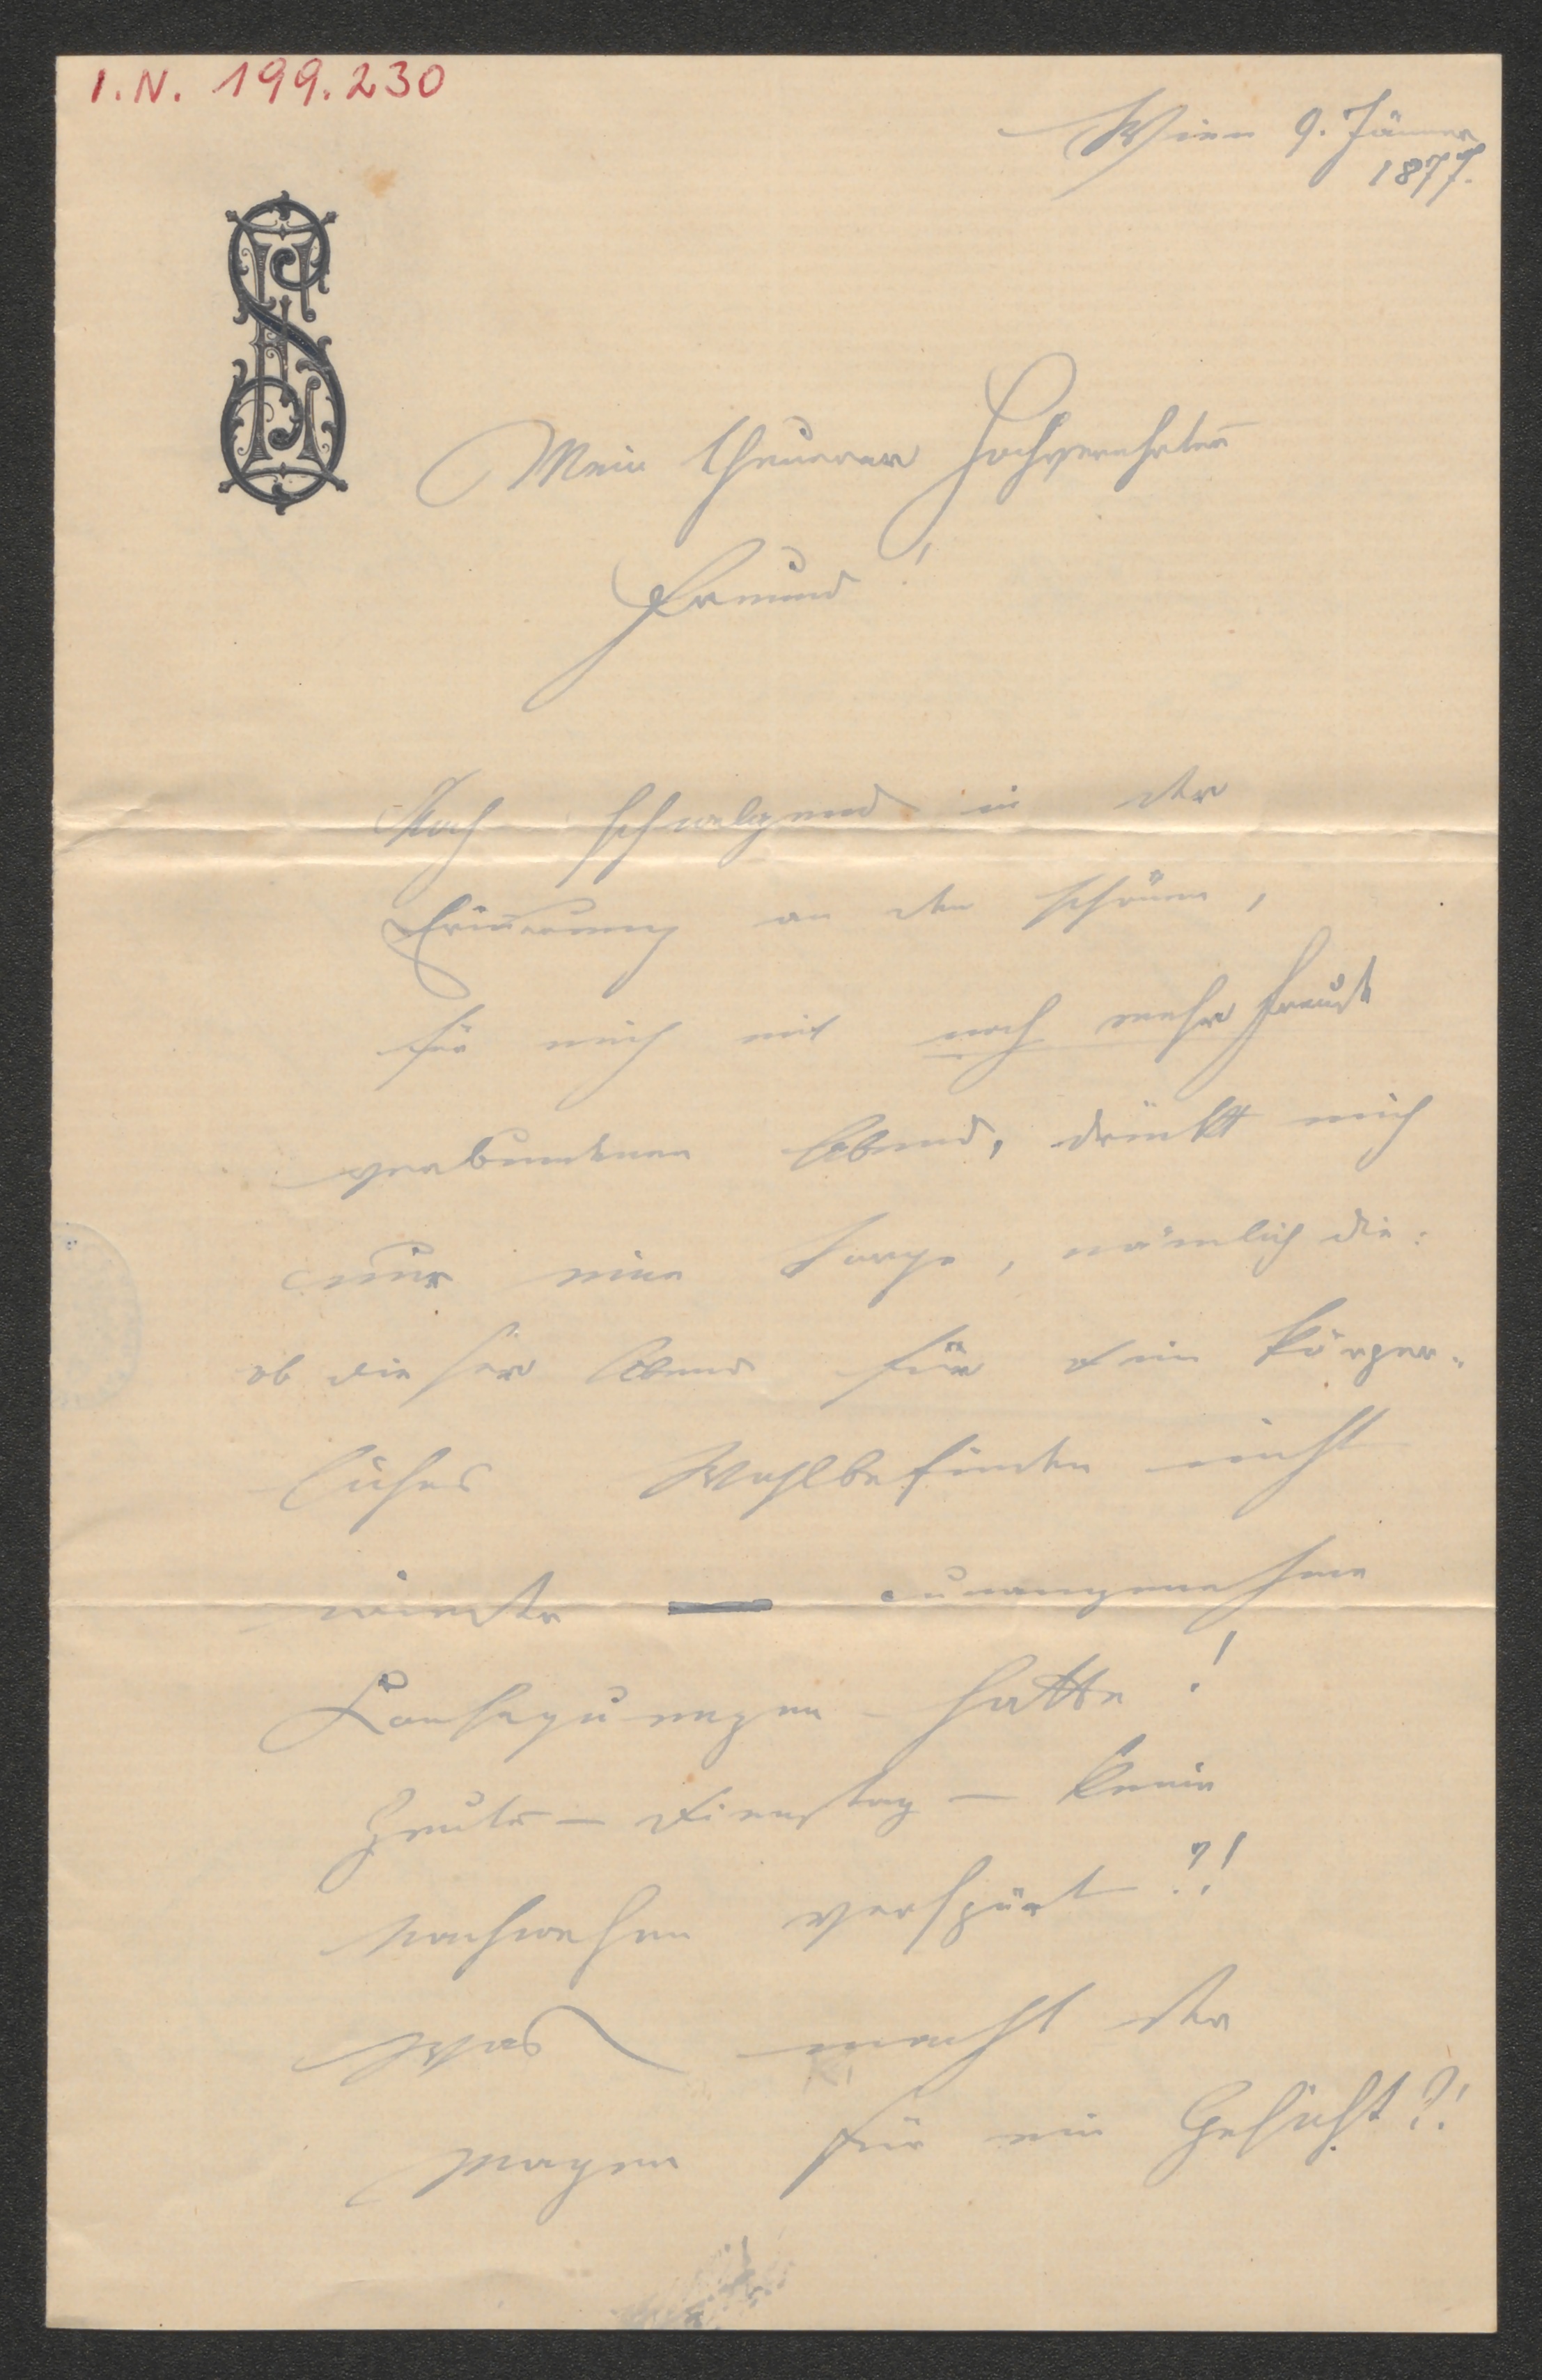 I.N. 199.230
Wien 9. Jänner
1877.
Mein theuerer Hochverehrter
Freund!
Noch schwelgend in der
Erinnerung an den schönen,
für mich mit noch mehr Freude
verbundenen Abend, drückt mich
nur eine Sorge, nämlich die:
ob dieser Abend für dein körper-
liches Wohlbefinden nicht
unangenehme
Consequenzen hatte!
Heute – Dienstag – keine
Nachwehen verspürt?!
Was macht der
Magen für ein Gesicht?!